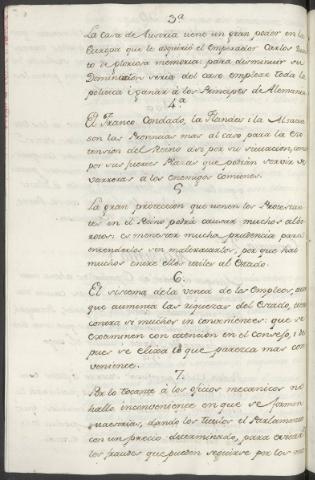 3ª
La Casa de Austria tiene un gran poder en la
Europa que le adquirió el Emperador Carlos
de gloriosa memoria: para disminuir su
Dominacion seria del caso emplear toda la
politica i ganar á los Principes de Alemania
4ª
El Franco Condado, la Flandes i la Alsacia
son las Provincias mas al caso para la Ex
tension del Reino asi por su situacion, como
por sus fuertes Plazas que podrán servir de
barreras a los enemigos comunes.
5
La gran proteccion que tienen los Protestan
tes en el Reino podrá causar muchos albo
rotos: es menester mucha prudencia para
contenerlos sin maltratarlos, por que hai
muchos entre ellos utiles al Estado.
6.
El sistema de la venta de los Empleos,
que aumenta las riquezas del Estado,
contra si muchos inconvenientes: que se
examinen con atencion en el Consejo, i des
pues se elixa lo que parezca mas con
veniente.
7.
Por lo tocante á los oficios mecanicos no
hallo inconveniente en que se formen
maestrias, dando los titulos el Parlamento
con un precio determinado, para evitar
los fraudes que pueden seguirse por los